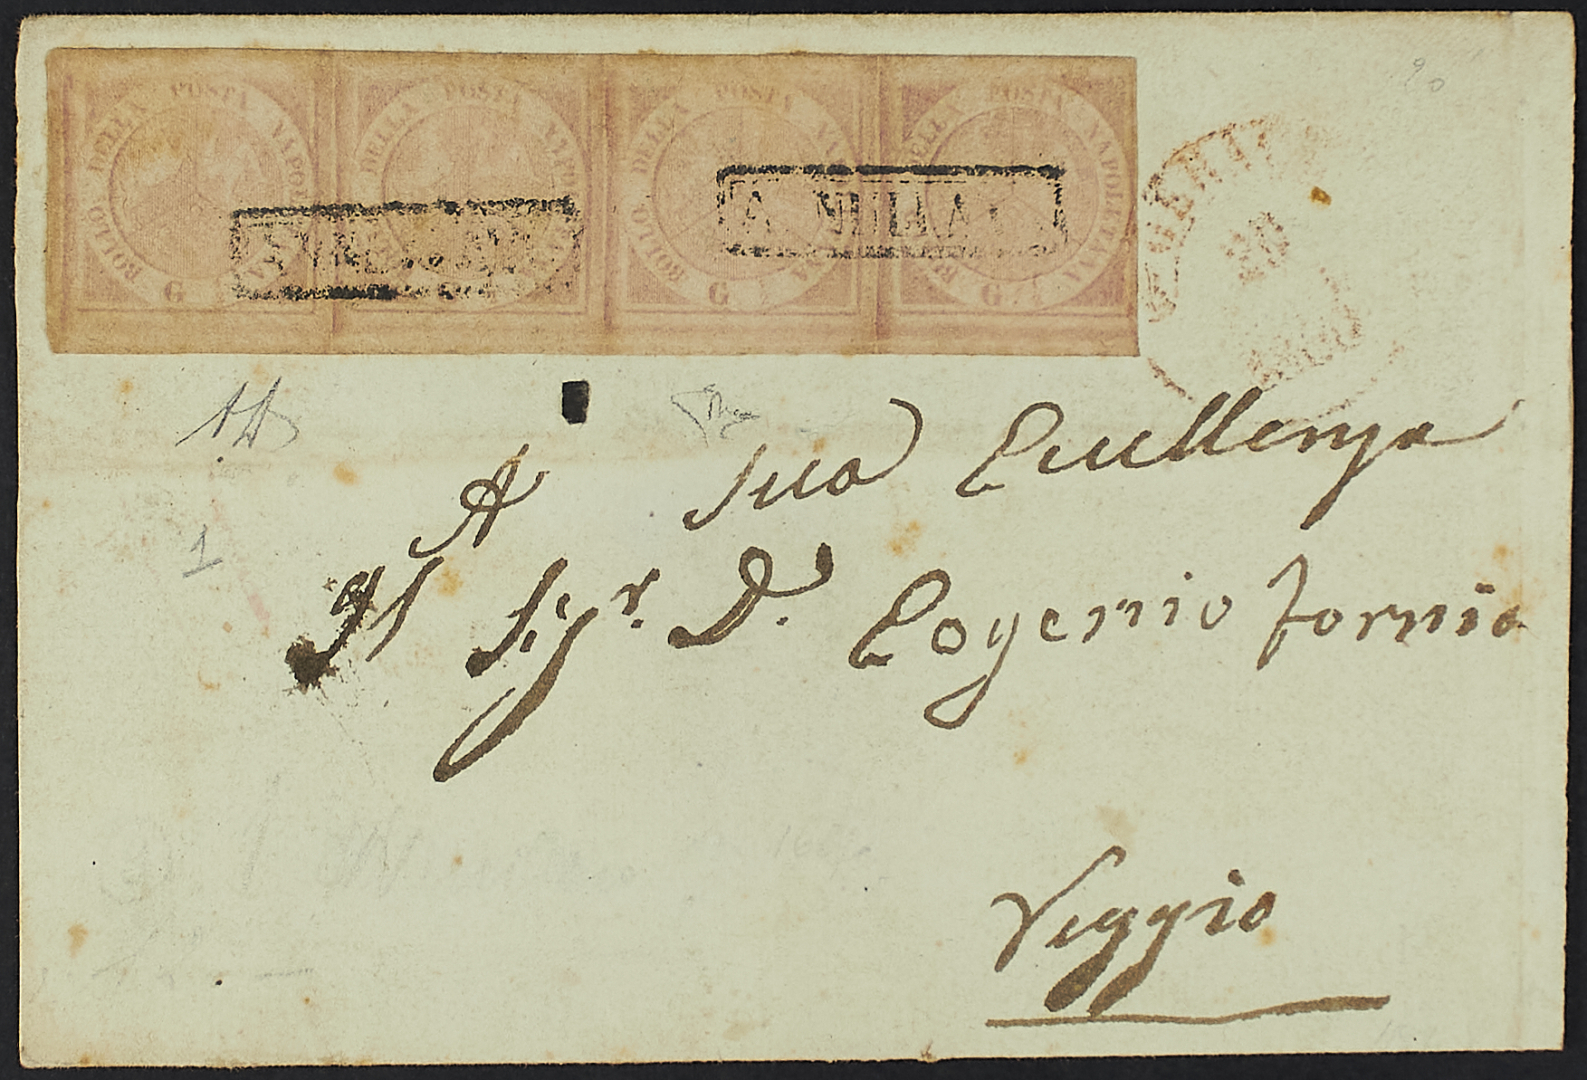 BOLLO DELLA POSTA NAPOLETANA
G
BOLLO DELLA POSTA NAPOLETANA
BOLLO DELLA POSTA NAPOLETANA
G
BOLLO DELLA POSTA NAPOLETANA
G
ANNULLATO
ANNULLATO
1
A Sua Eccellenza
Il Sigr. D. Eogenio Fornio
Reggio